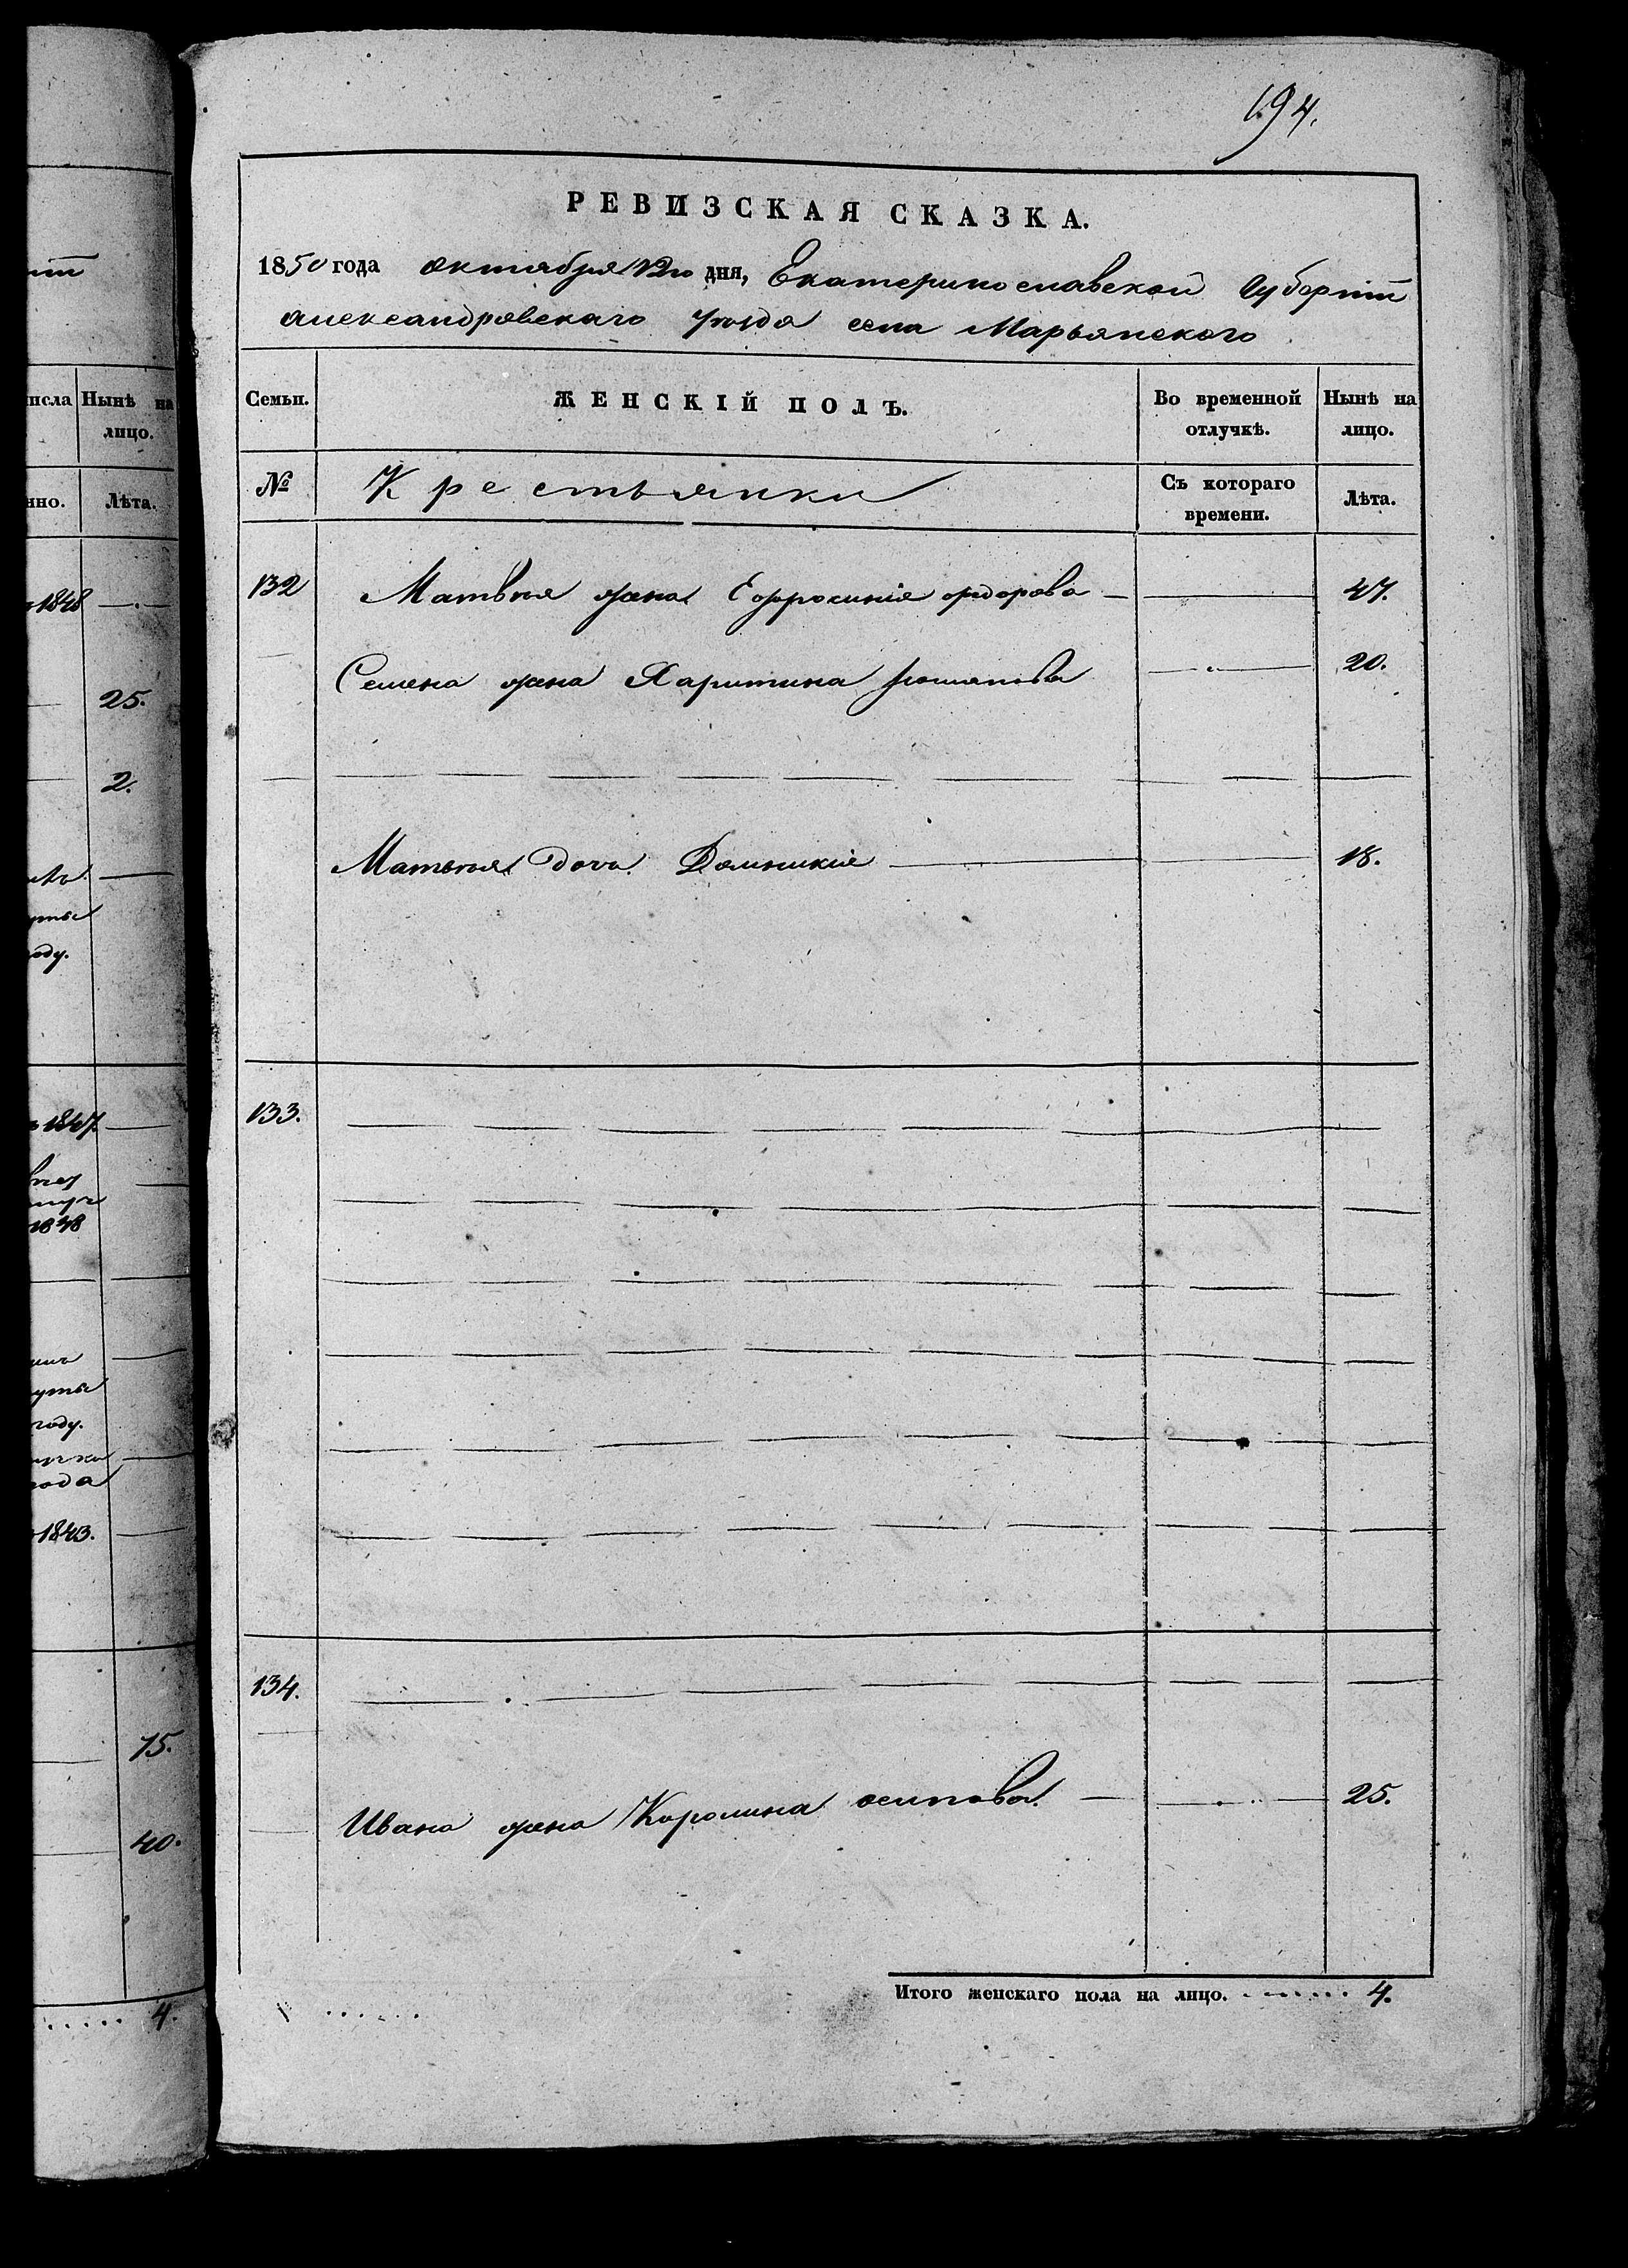 194.
РЕВИЗСКАЯ СКАЗКА.
1850 года октября 12го дня, Екатеринославской Губернии
александровскаго уезда села Марьянского
Семьи.
ЖЕНСКІЙ ПОЛЪ.
Во временной отлучкѣ.
Нынѣ на лицо.
№
Крестьянки
Съ котораго времени.
Лѣта.
132 Матвея жена Ефросиния фдорова 47.
Семена жена Харитина 20.
Матвея дочь Домникия 18.
133.
134.
Ивана жена Каролина осипова. 25.
Итого женскаго пола на лицо. 4.
исла Нынѣ на
лицо.
нно. Лѣта.
1848
25.
2.
оду.
1847.
1848
году.
года
1843.
75.
40.
4.